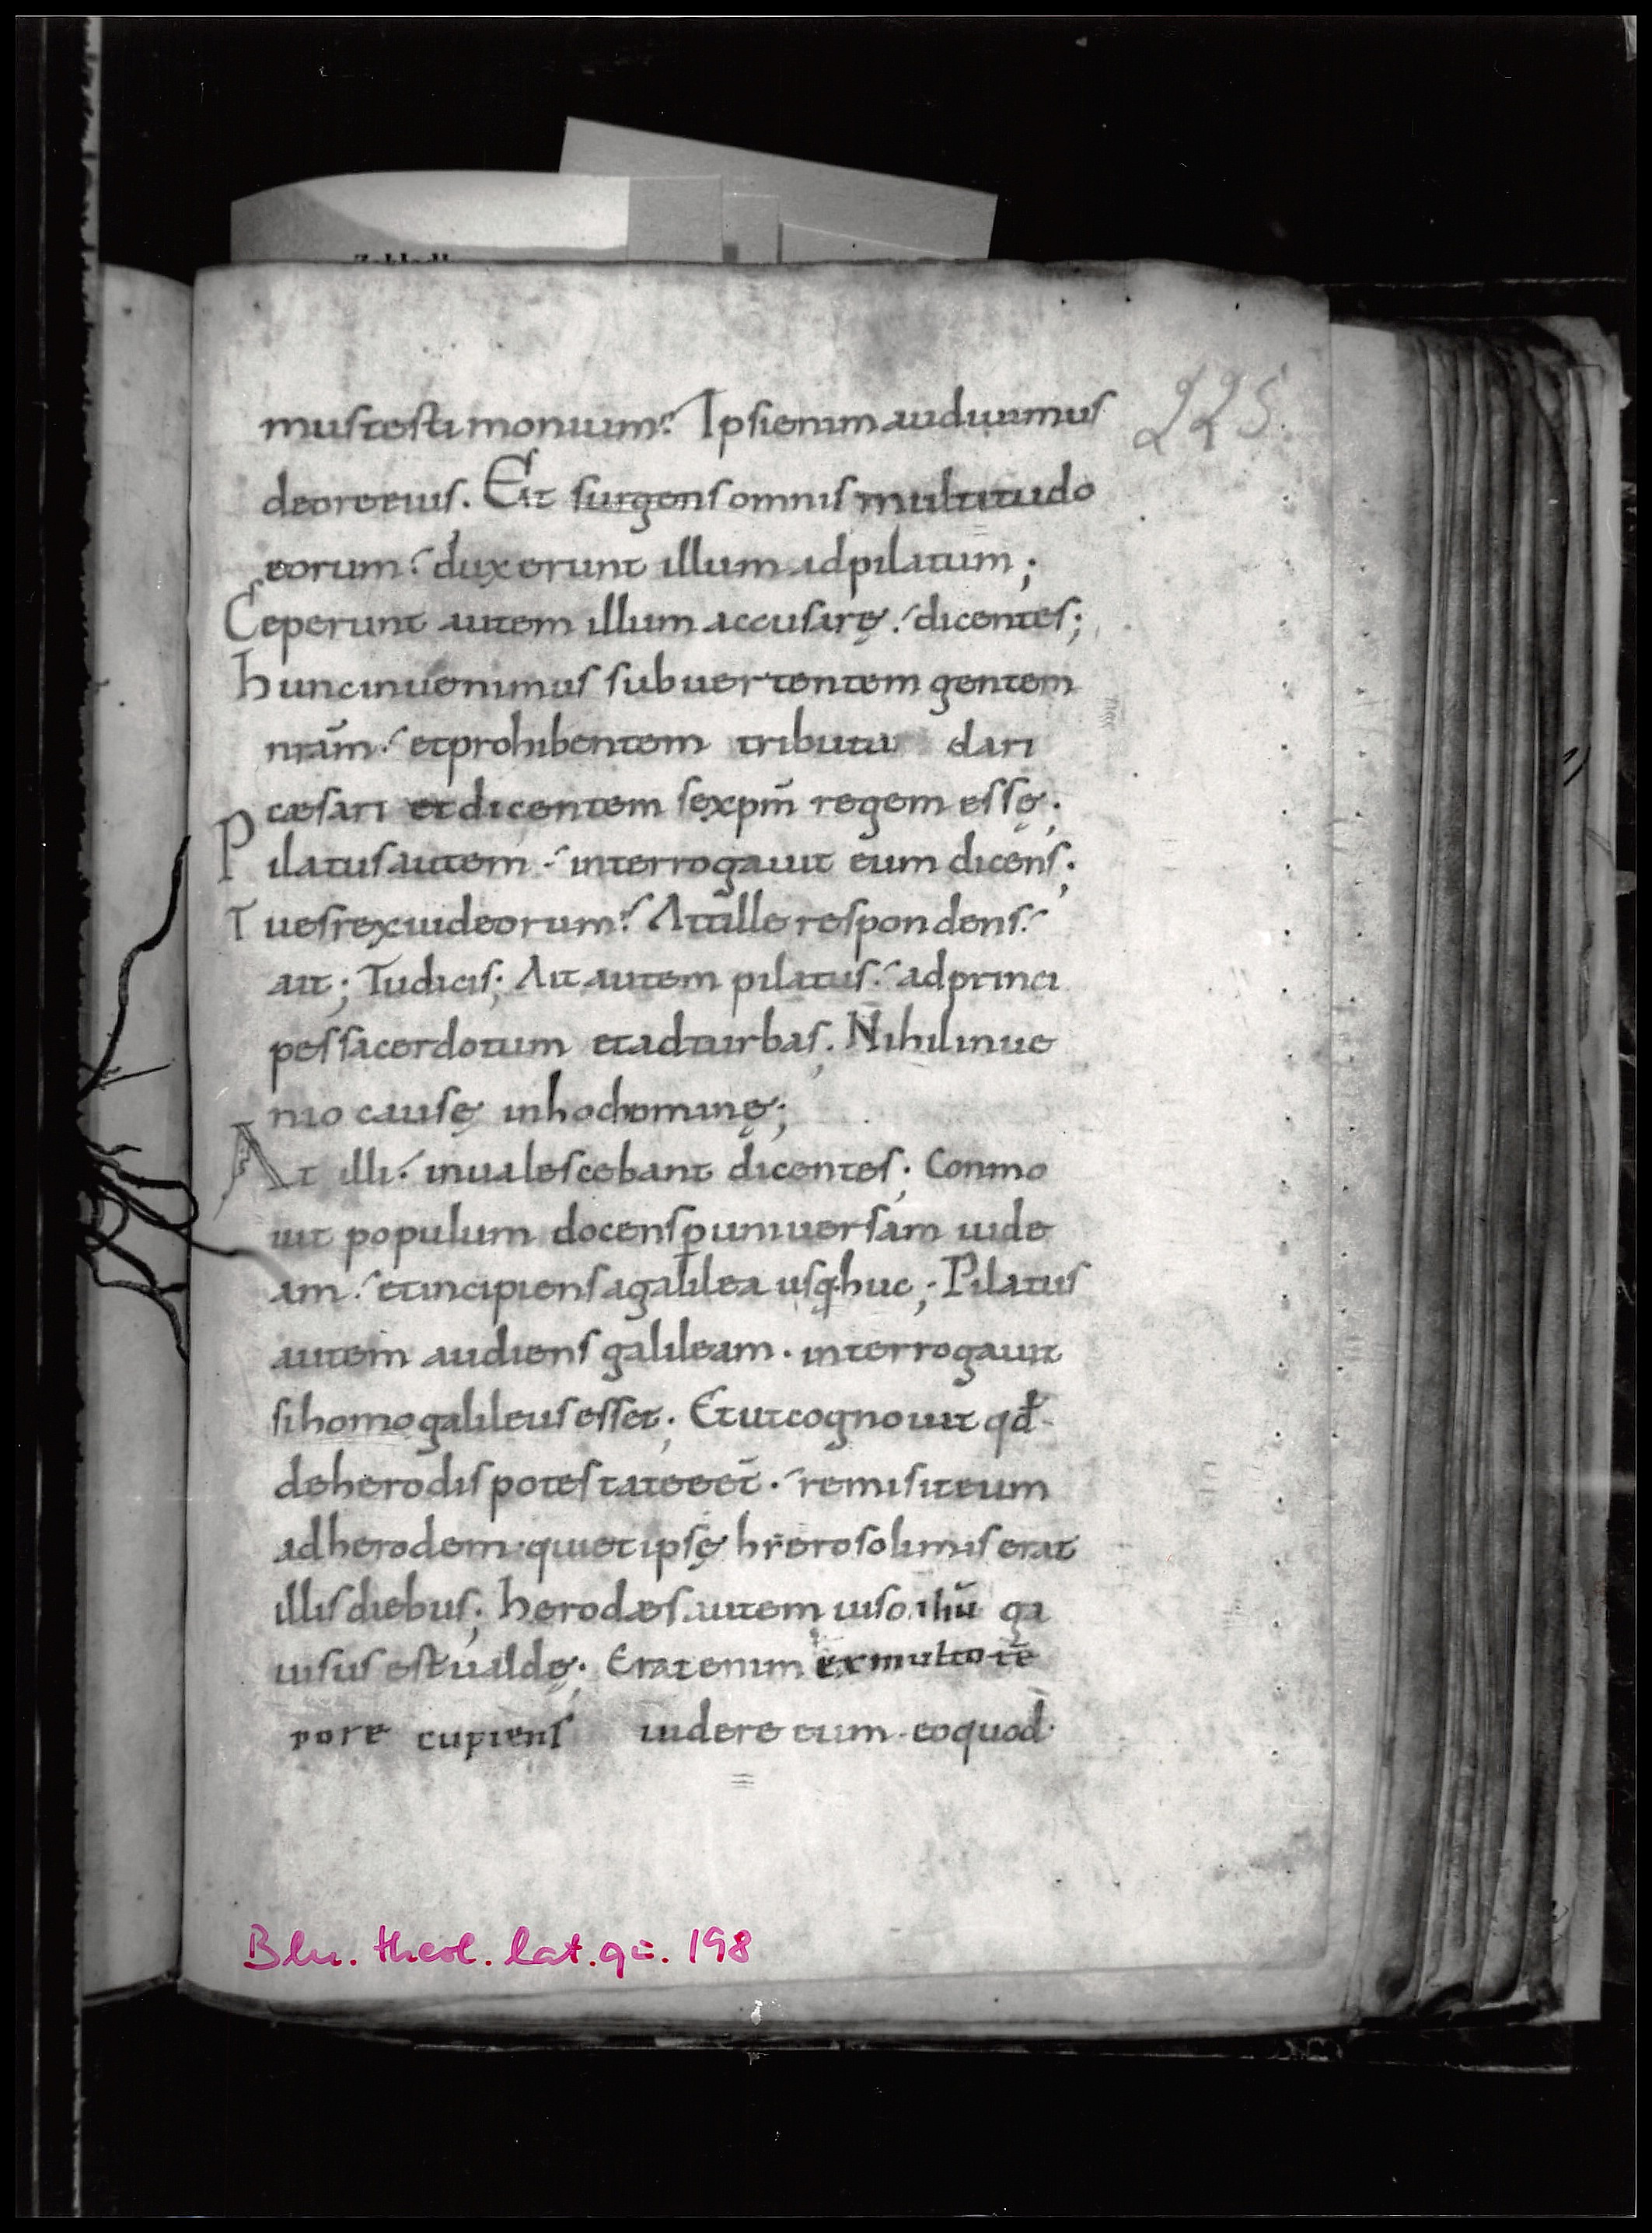 225.
mus testimonium? Ipsi enim audiuimus
deore eius. Et surgens omnis multitudo
eorum duxerunt illum ad pilatum;
Ceperunt autem illum accusarę dicentes;
hunc inuenimus subuertentem gentem
nrām et prohibentem tributa dari
cæsari et dicentem se xpm̄ regem essę.
Pilatus autem interrogauit eum dicens;
Tu es rex iudeorum? At ille respondens
ait; Tu dicis; Ait autem pilatus ad princi
pes sacerdotum et ad turbas; Nihil inue
nio causę in hoc hominę;
At illi inualescebant dicentes; Conmo
uit populum docens ꝑ uniuersam iude
am et incipiens a galilea usq; huc; Pilatus
autem audiens galileam · interrogauit
si homo galileus esset; Et ut cognouit qđ
de herodis potestate eēt · remisit eum
ad herodem qui et ipsę hierosolimis erat
illis diebus; herodes autem uiso ihū ga
uisus est ualdę; Erat enim ex multo tē
pore cupiens uidere eum · eo quod
Bln. theol. lat. qu. 198